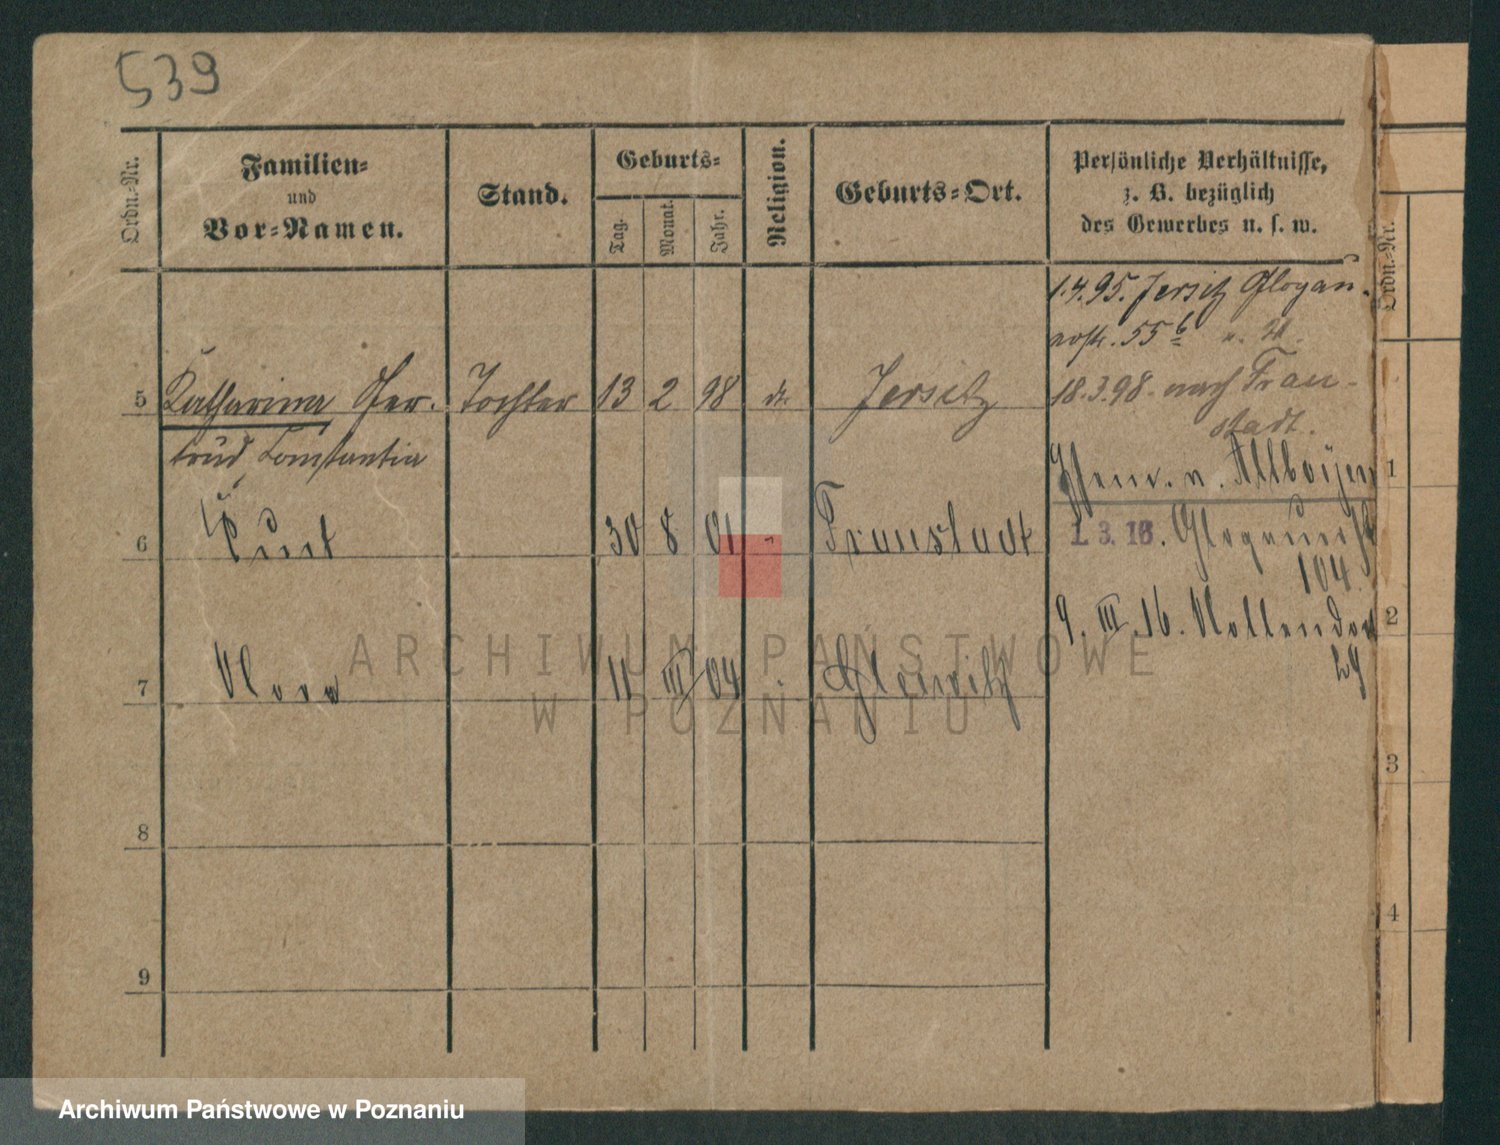 539
Ordn.-Nr.
Familien-
und
Vor-Namen.
Stand.
Geburts-
Tag.
Monat.
Jahr.
Religion.
Geburts-Ort.
Persönliche Verhältnisse,
z. B. bezüglich
des Gewerbes u. s. w.
Ordn.-Nr.
1.4.95. Jersitz Glogau.
55 b
5 Katharina Ger- Tochter 13 2 98 Jersitz
trud Constantia
18.3.98. nach Frau-
stadt.
6 Kurt 30 8 01 Fraustadt
1. 3. 16.
104
9. III. 16.
29
7 11 III 04 Gleiwitz
8
9
1
2
3
4
ARCHIWUM PAŃSTWOWE
W POZNANIU
Archiwum Państwowe w Poznaniu